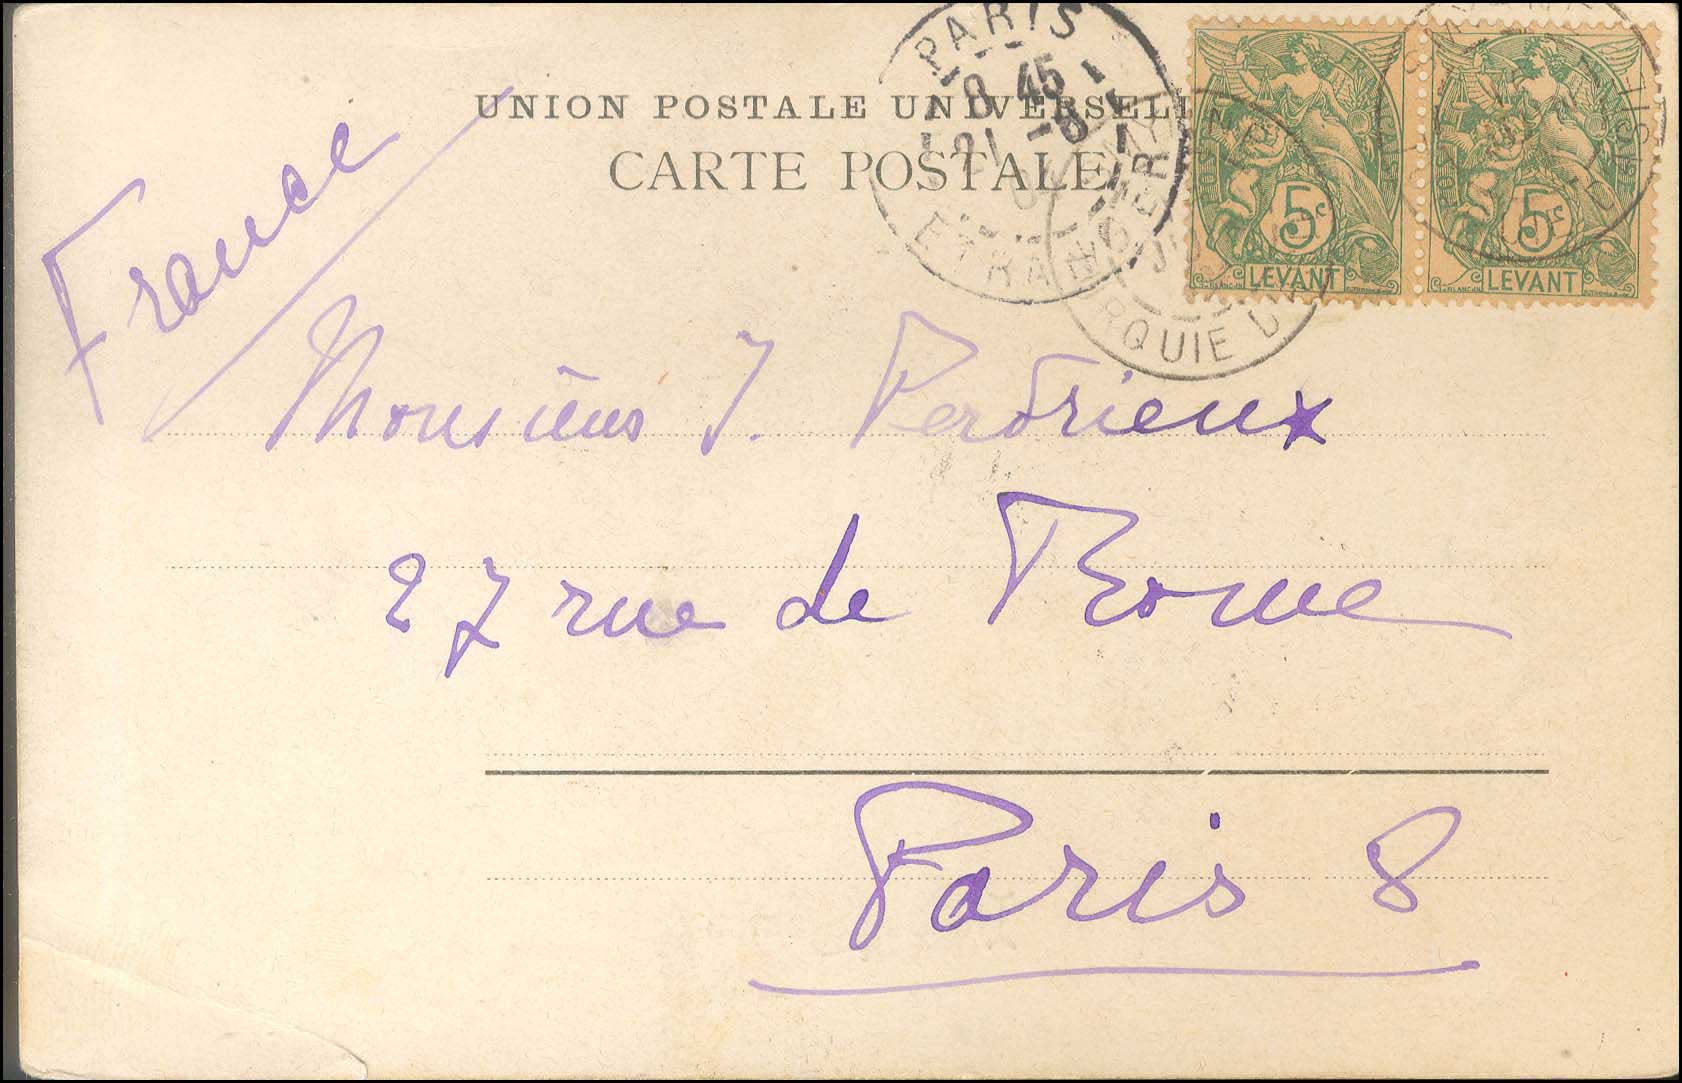 UNION POSTALE UNIVERSELL
CARTE POSTALE
PARIS
8 45
21 -8
ETRANGER
5c
LEVANT
5c
LEVANT
France
Monsieur J. Perdrieux
27 rue de Rome
Paris 8